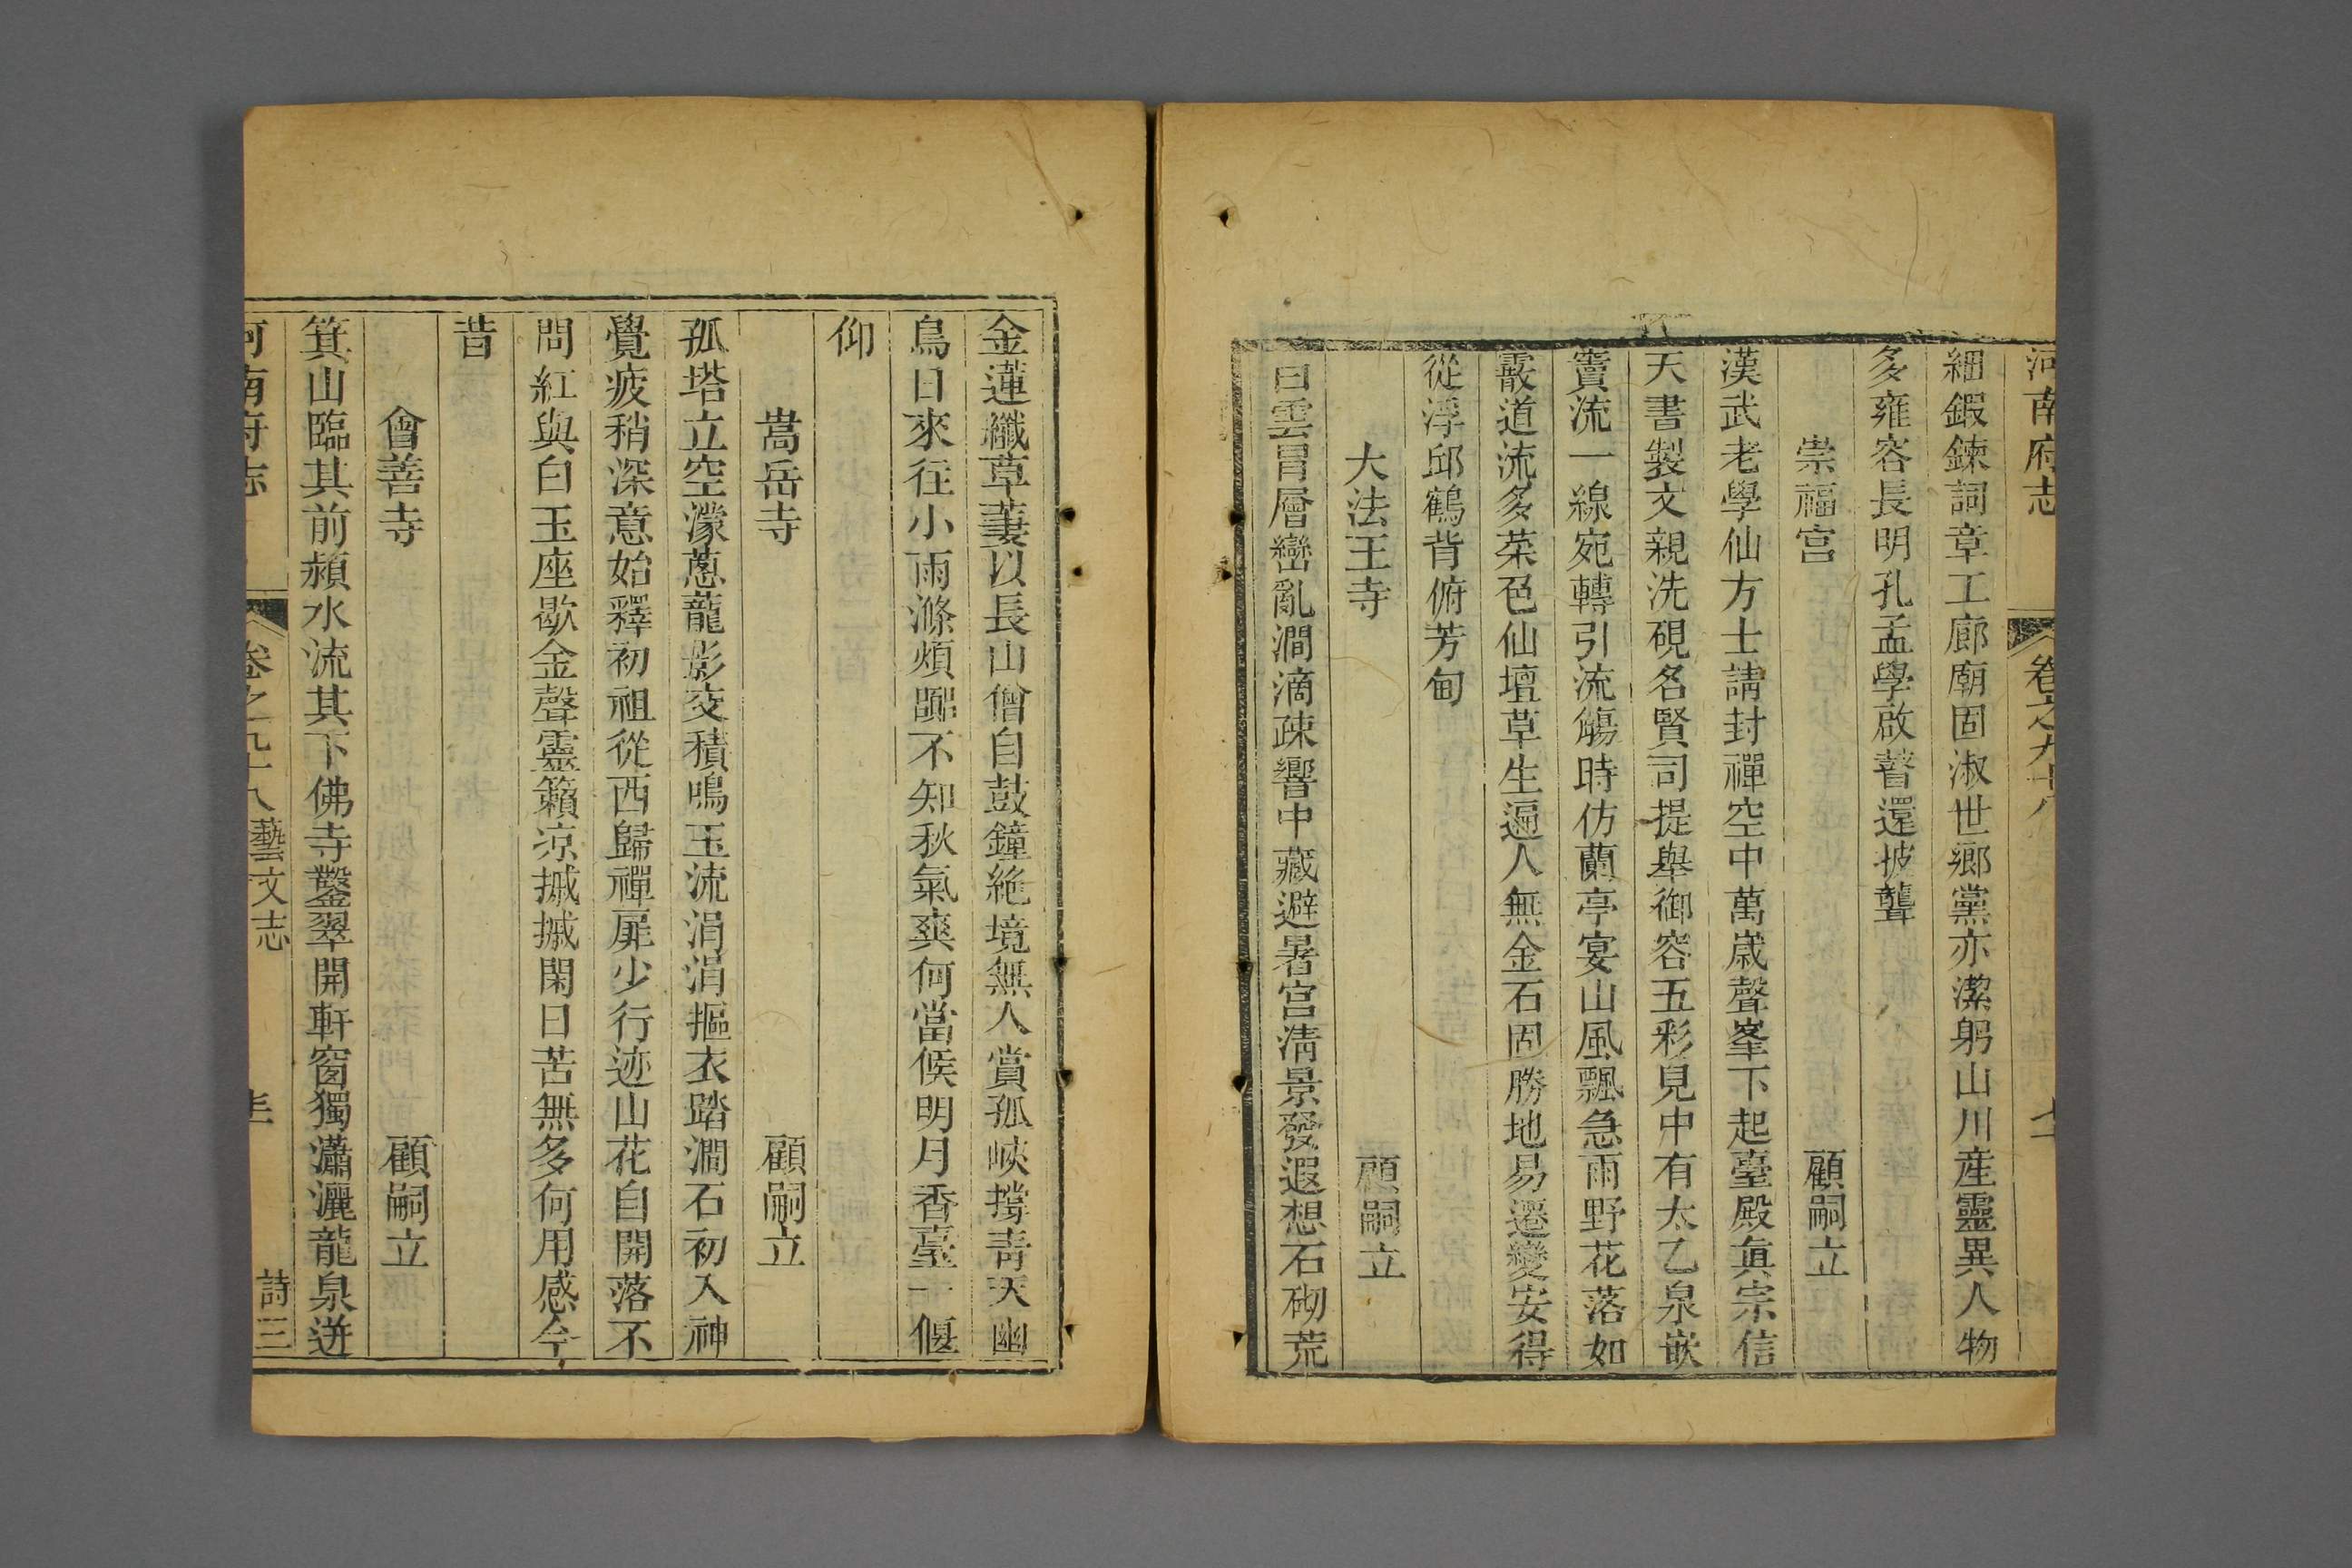 河南府志 卷之九十八
細鍜鍊詞章工廊廟固淑世鄉黨亦潔躬山川産靈異人物
多雍容長明孔孟學啟瞽還披聾
崇福宫 顧嗣立
漢武老學仙方士請封禪空中萬歲聲峯下起臺殿眞宗信
天書製文親洗硯名賢司提舉御容五彩見中有太乙泉嵌
竇流一線宛轉引流觴時仿蘭亭宴山風飄急雨野花落如
霰道流多菜色仙壇草生遍人無金石固勝地易遷變安得
從浮邱鶴背俯芳甸
大法王寺 顧嗣立
白雲冒層巒亂澗滴疎響中藏避暑宫淸景發遐想石砌荒
金蓮纖草萋以長山僧自鼓鐘絶境無人賞孤峽撐靑天幽
鳥日來往小雨滌煩嚻不知秋氣爽何當候明月香臺一偃
仰
嵩岳寺 顧嗣立
孤塔立空濛蔥蘢影交積鳴玉流涓涓摳衣踏澗石初入神
覺疲稍深意始釋初祖從西歸禪扉少行迹山花自開落不
問紅與白玉座歇金聲靈籟凉摵摵閑日苦無多何用感今
昔
會善寺 顧嗣立
箕山臨其前潁水流其下佛寺鑿翠開軒窗獨瀟灑龍泉迸
河南府志 卷之九十八 藝文志 詩三